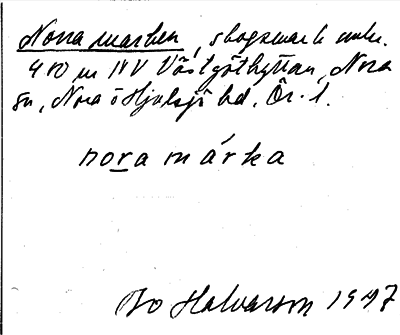 Norra marken, skogsmark omkr.
400 m NV Västgöthyttan, Nora
sn, Nora o Hjulsjö hd, Ör. l.
nora márka
Bo Halvarson 1947